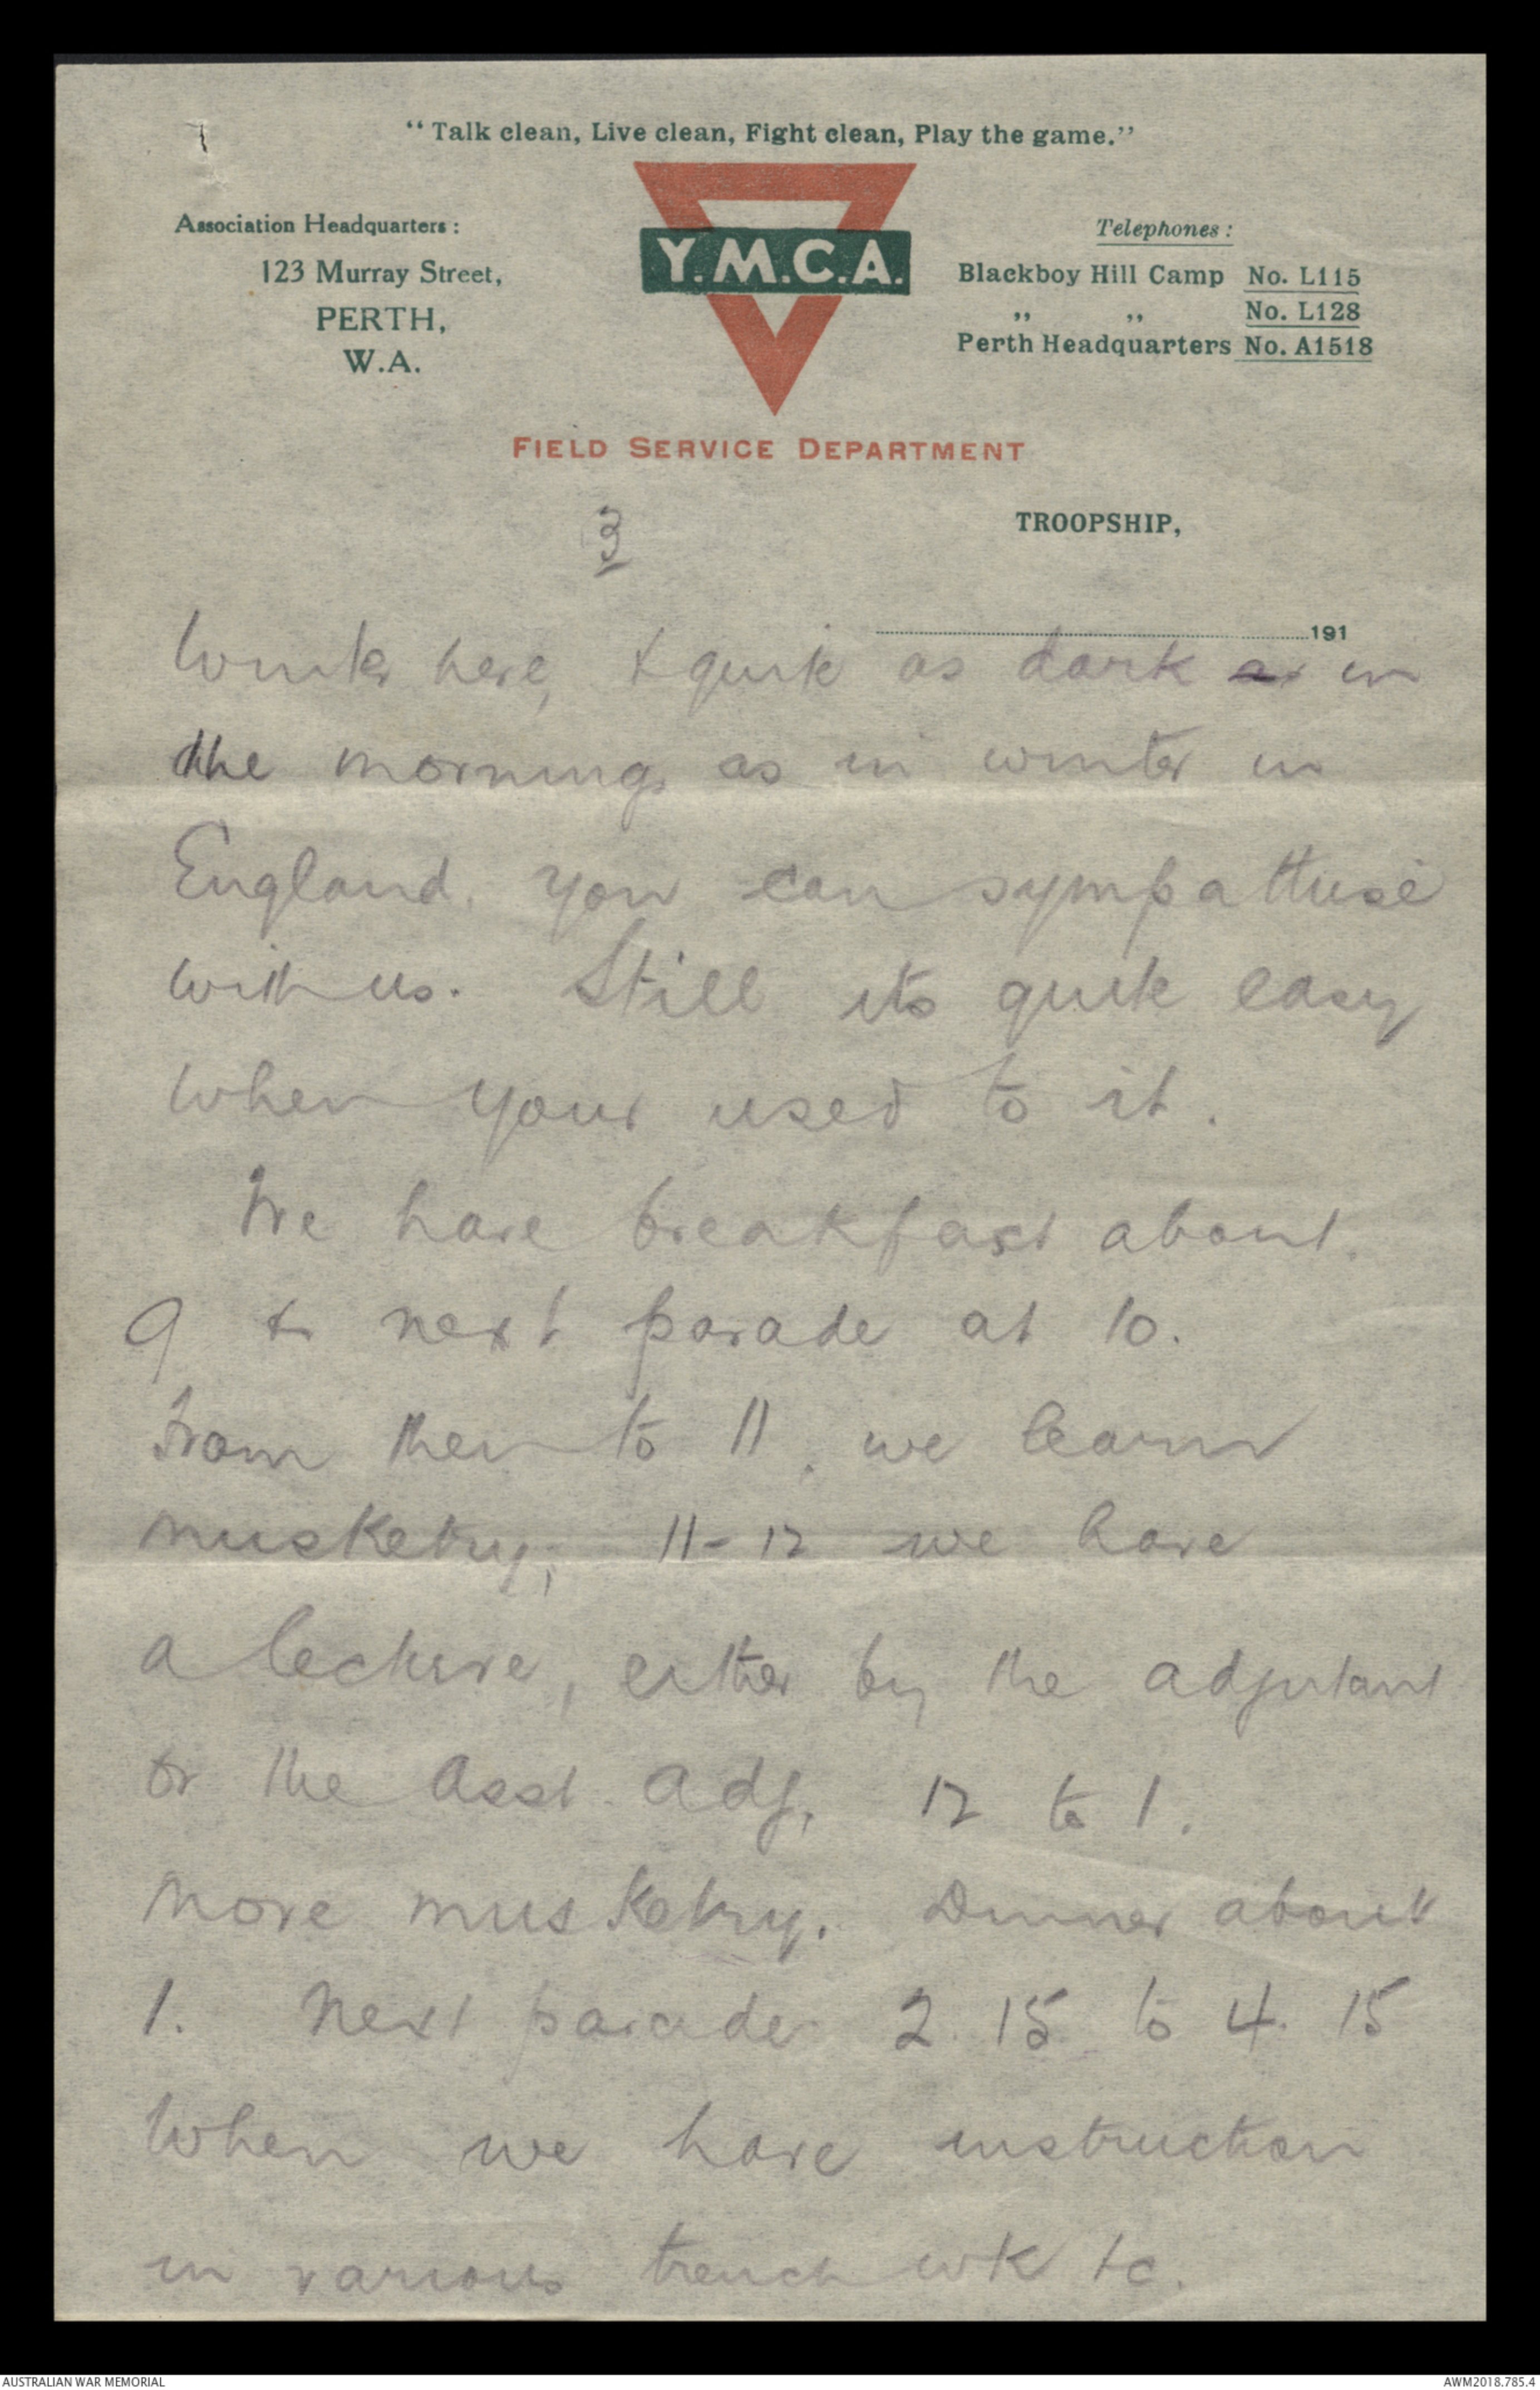 "Talk clean, Live clean, Fight clean, Play the game."
Association Headquarters:
123 Murray Street,
PERTH,
W.A.
Y.M.C.A.
Telephones:
Blackboy Hill Camp No. L115
,, ,, No. L128
Perth Headquarters No. A1518
FIELD SERVICE DEPARTMENT
3
TROOPSHIP,
191
Winter here, & quite as dark as in
the mornings as in winter in
England. You can sympathise
with us. Still its quite easy
when your used to it.
We have breakfast about
9 & next parade at 10.
From then to 11, we learn
musketry; 11-12 we have
a lecture, either by the adjutant
or the Asst. Adj. 12 to 1.
more musketry. Dinner about
1. Next parade 2.15 to 4.15
When we have instruction
in various trench wk &c.
AUSTRALIAN WAR MEMORIAL
AWM2018.785.4